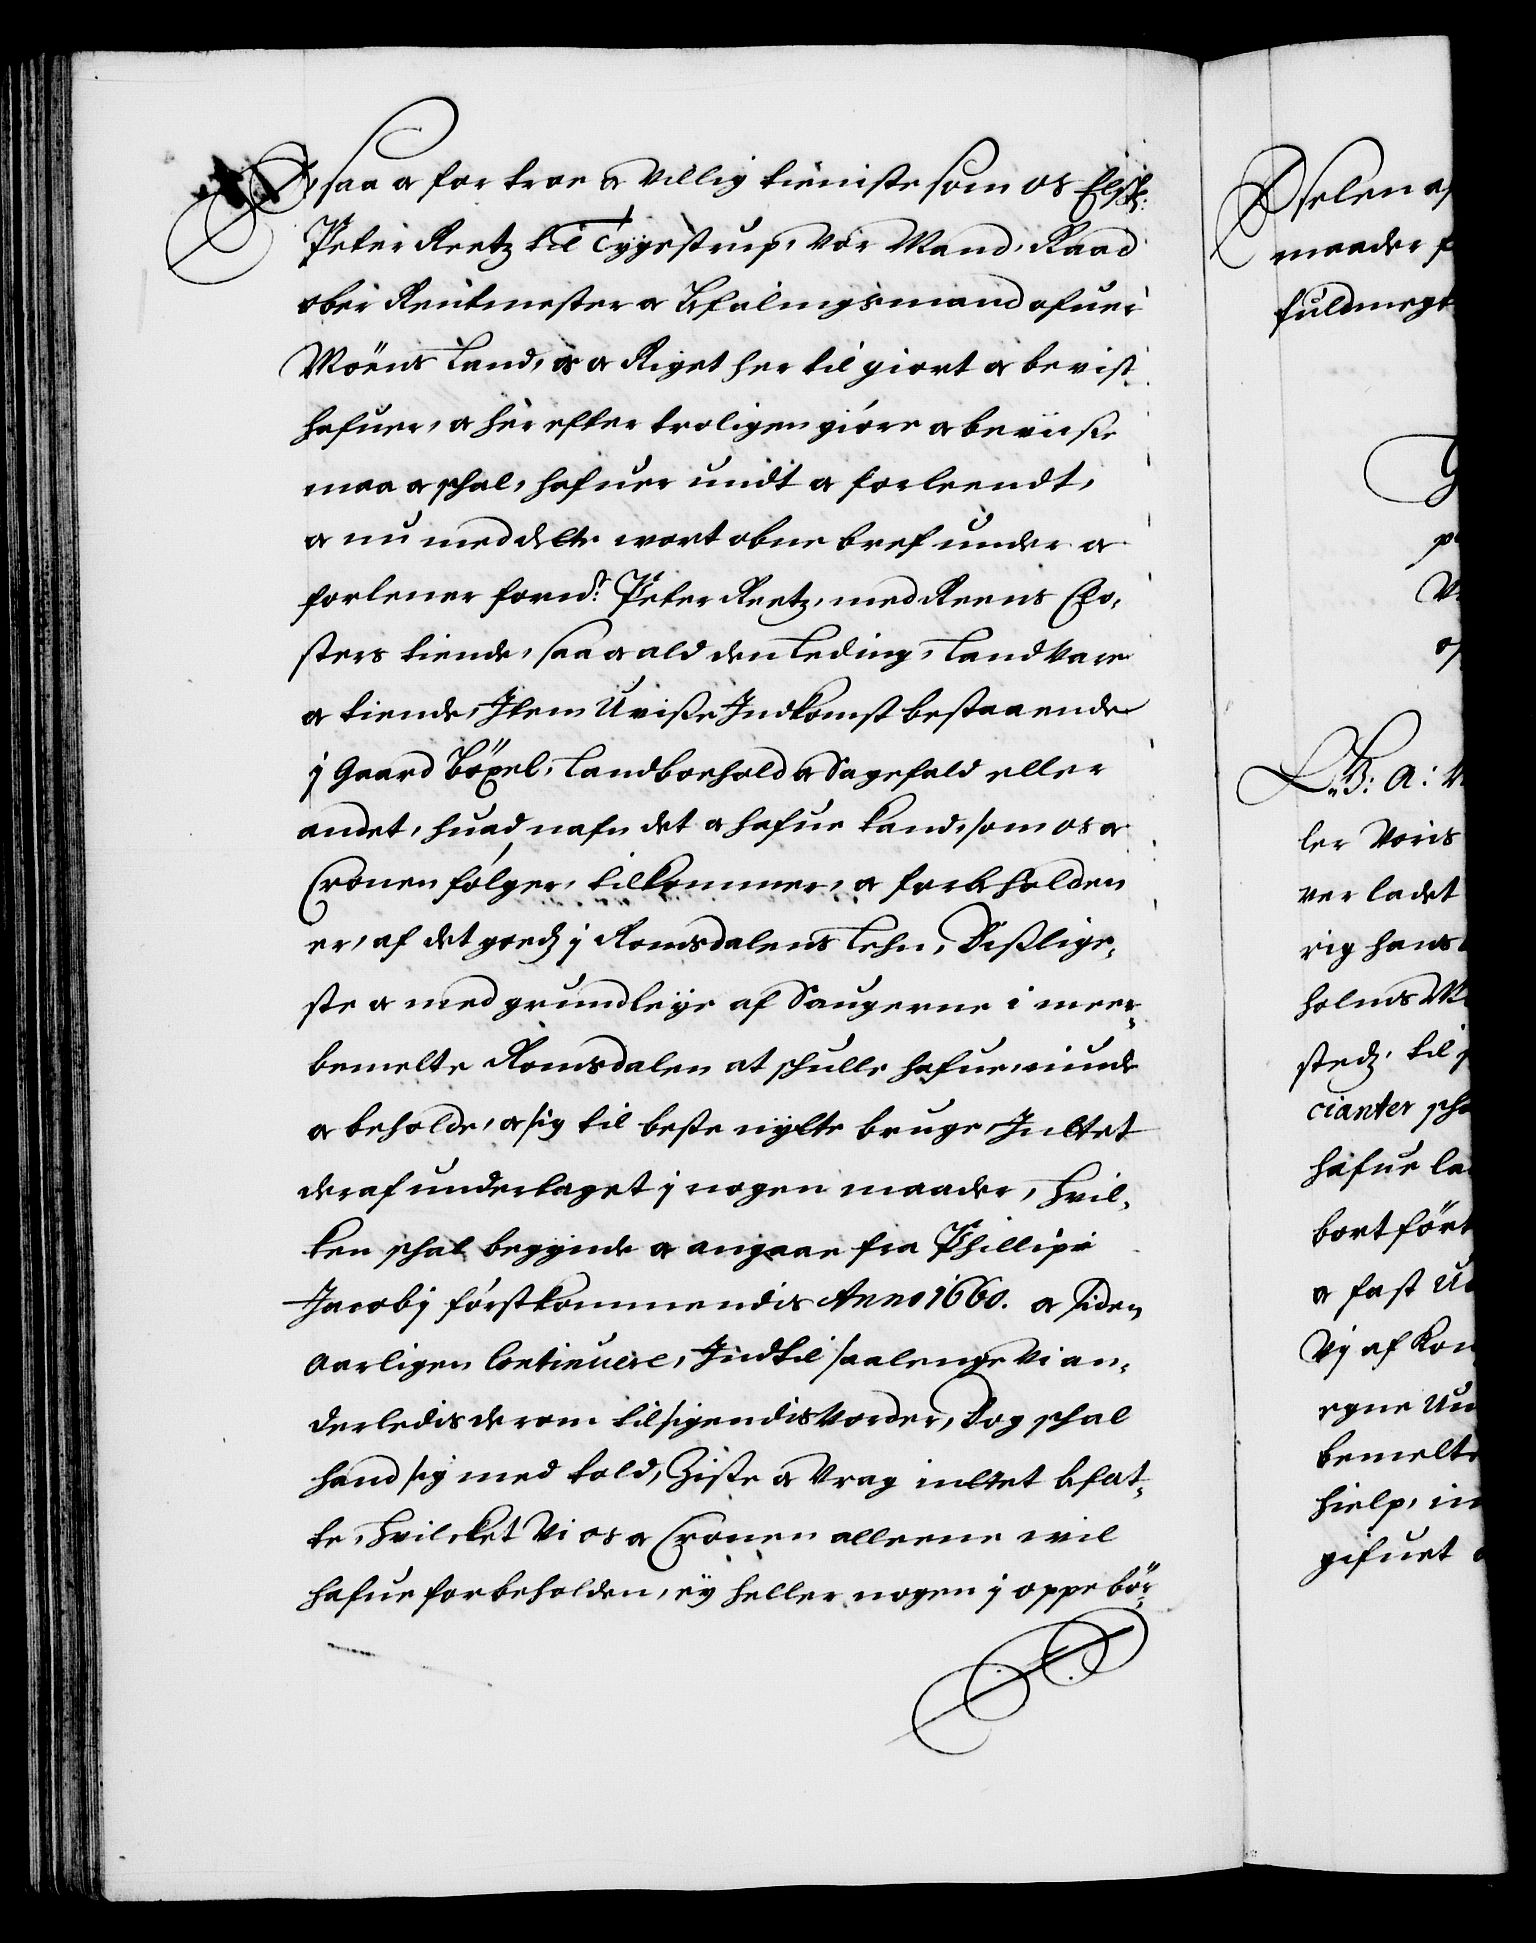 saa og for troe og villig tieniste som os Elsk:
Peter Reetz til Tygestrup, Vor Mand, Raad
ober Rentmester og Befalingsmand ofuer
Möens Land, os og Riget her til giort og bevist
hafuer, og her efter troligen giöre og beviise
maa og schal, hafuer undt og forleendt,
og nu med dette wort obne bref under og
forlener fornd: Peter Reetz, med Reens Clo,
sters tiende, saa og ald den Leding, Landvare
og tiende, Item Uvisse Indkomst bestaaende
j Gaard Böxel, Landboehold og Sagefald eller
andet, huad nafn det og hafue kand, som os og
Cronen fölger, tilkommer, og forbeholden
er, af det goedz j Romsdalens Lehn, Disslige,
ste og med grundleye af Saugerne i meer,
bemelte Romsdalen at schulle hafue, niude
og beholde, og sig til beste nytte bruge, Intet
deraf undertaget j nogen maader, Hvil,
ken schal begynde og angaae fra Phillipi
Jacobj förstkommendis Anno 1660. og siden
Aarligen Continuere, Indtil saalenge Vi an,
derledis derom tilsigendis vorder, Dog schal
hand sig med told, Zisse og Vrag intet befat,
te, Hvilcket Vi os og Cronen alleene wil
hafue forbeholden, ey heller nogen j oppebör,
maader
fuldmegt
ler Voris
ver ladet
rig hans
holms
stedz, til
cianter
hafue
bort fört
og fast
Vij af
egne
bemelte
hielp,
gifuet